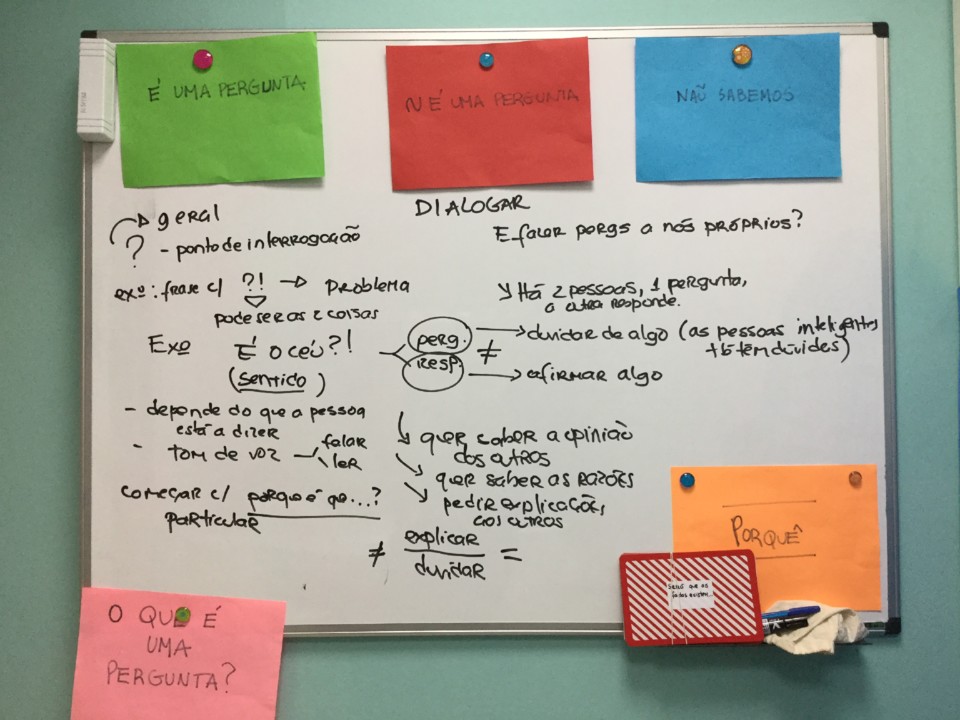 É UMA PERGUNTA
N É UMA PERGUNTA
NÃO SABEMOS
DIALOGAR
geral
? - ponto de interrogação
E falar pergs a nós próprios?
exº: frase c/ ?! → problema
pode ser as 2 coisas
Há 2 pessoas, 1 pergunta,
a outra responde.
Exº É o céu?!
(sentido)
perg.
≠
resp.
duvidar de algo (as pessoas inteligentes
tb têm dúvidas)
afirmar algo
- depende do que a pessoa
está a dizer
- tom de voz
falar
ler
quer saber a opinião
dos outros
quer saber as razões
pedir explicações,
aos outros
começar c/ porque é que...?
particular
≠ explicar =
duvidar
PORQUÊ
O QUE É
UMA
PERGUNTA?